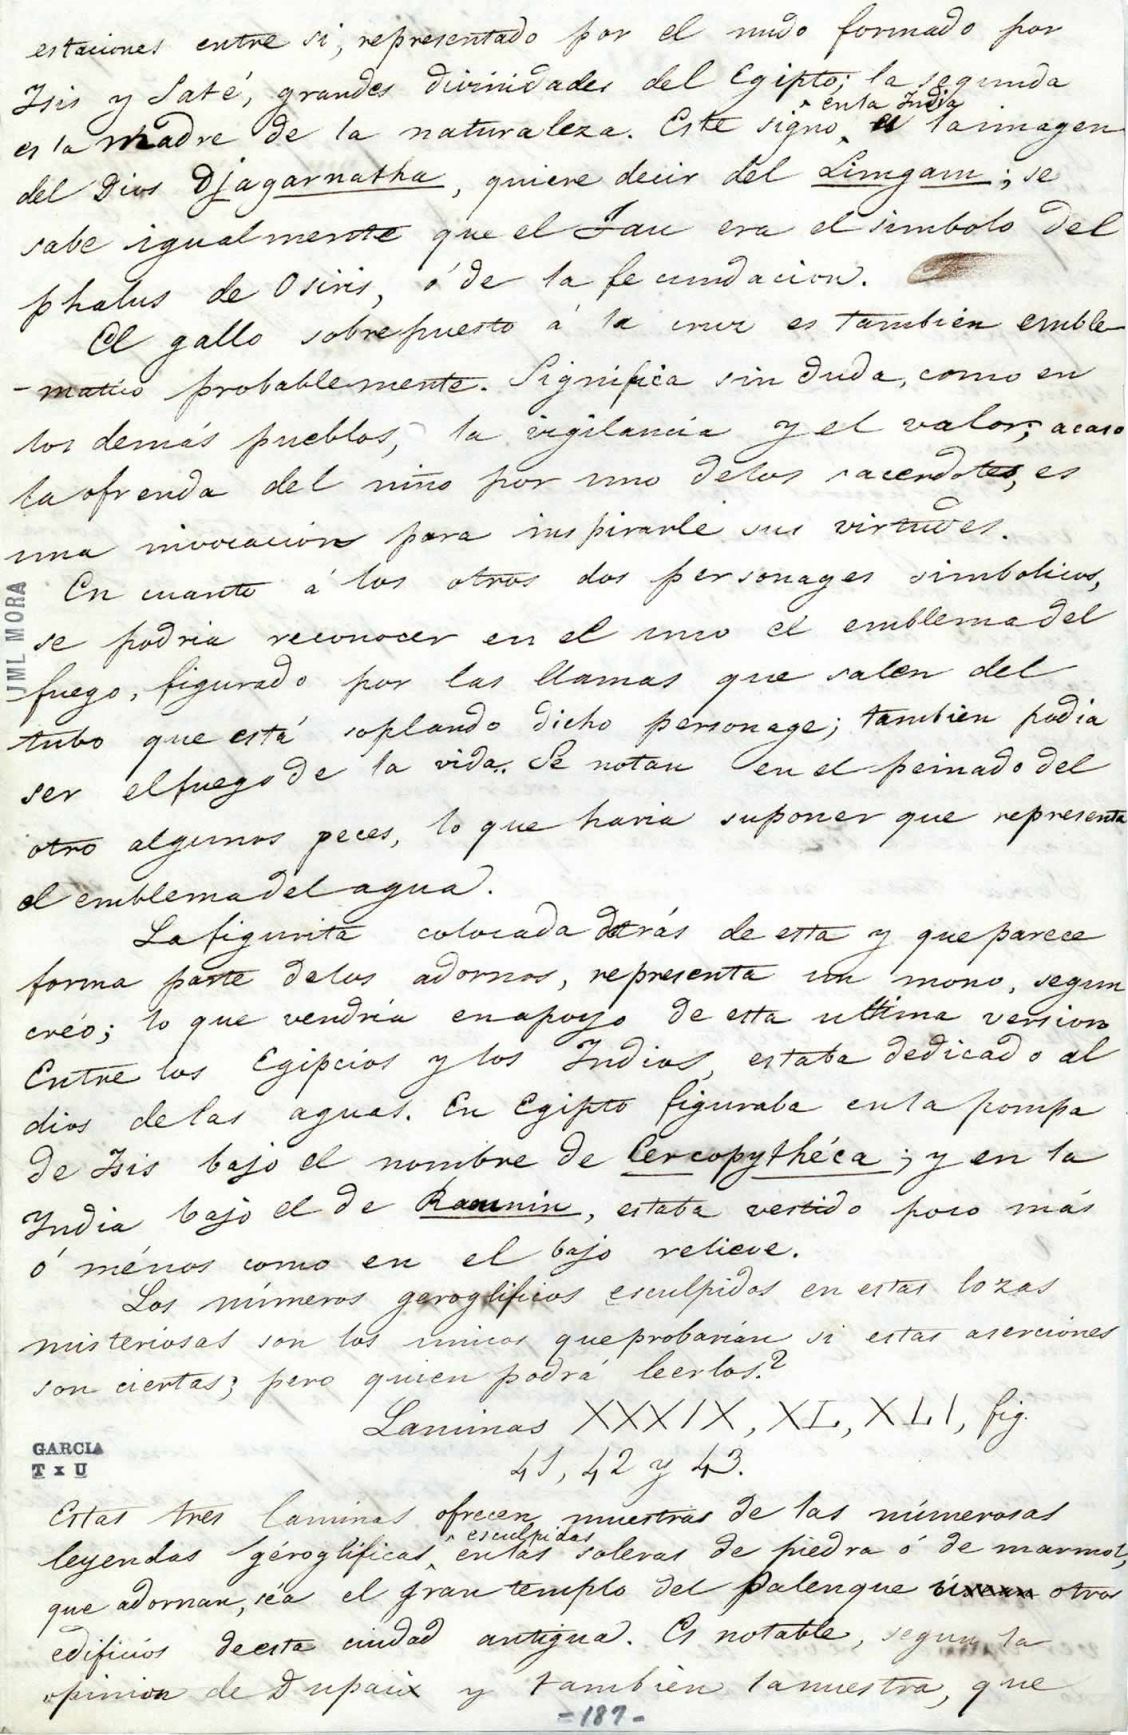 estaciones entre si, representado por el nudo formado por
Isis y Saté, grandes divinidades del Egipto; la segunda
es la madre de la naturaleza. Este signo, en la India es la imagen
del Dios Djagarnatha, quiere decir del Limgam; se
sabe igualmente que el Tau era el simbolo del
phalus de Osiris, ó de la fecundacion.
El gallo sobrepuesto á la cruz es tambien emble-
-matico probablemente. Significa sin duda, como en
los demás pueblos, la vigilancia y el valor; acaso
la ofrenda del niño por uno de los sacerdotes, es
una invocacion para inspirarle sus virtudes.
En cuanto á los otros dos personages simbolicos,
se podria reconocer en el uno el emblema del
fuego, figurado por las llamas que salen del
tubo que está soplando dicho personage; tambien podia
ser el fuego de la vida. Se notan en el peinado del
otro algunos peces, lo que haria suponer que representa
el emblema del agua.
La figurita colocada detrás de esta y que parece
forma parte de los adornos, representa un mono, segun
creo; lo que vendria en apoyo de esta ultima version
Entre los Egipcios y los Indios, estaba dedicado al
dios de las aguas. En Egipto figuraba en la pompa
de Isis bajo el nombre de Cercopythéca; y en la
India bajo el de , estaba vestido poco más
ó ménos como en el bajo relieve.
Los números geroglificos esculpidos en estas lozas
misteriosas son los unicos que probarian si estas aserciones
son ciertas; pero quien podrá leerlos?
Laminas XXXIX, XL, XLI, fig.
41, 42 y 43.
Estas tres laminas ofrecen muestras de las númerosas
leyendas géroglificas, esculpidas en las soleras de piedra ó de marmol,
que adornan, séa el gran templo del Palenque otros
edificios de esta ciudad antigua. Es notable, segun la
opinion de Dupaix y tambien la nuestra, que
-187-
JML MORA
GARCIA
T x U